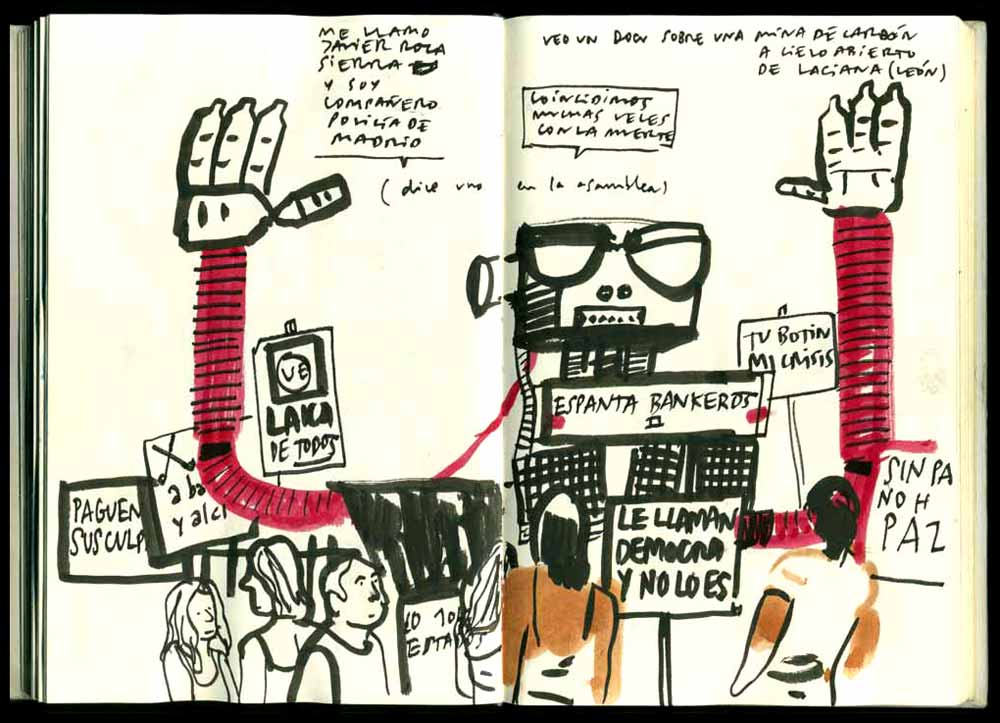 ME LLAMO
JAVIER ROCA
SIERRA
Y SOY
COMPAÑERO
POLICÍA DE
MADRID
VEO UN DOCU SOBRE UNA MINA DE CARBÓN
A CIELO ABIERTO
DE LACIANA (LEÓN)
COINCIDIMOS
MUCHAS VECES
CON LA MUERTE
(dice uno en la asamblea)
TU BOTIN
MI CRISIS
VE
LAICA
DE TODOS
ESPANTA BANKEROS
II
PAGUEN
SUS CULP
a ba
y alci
SIN PA
NO H
PAZ
LE LLAMAN
DEMOCRA
Y NO LO ES
LO TO
ESTADOS